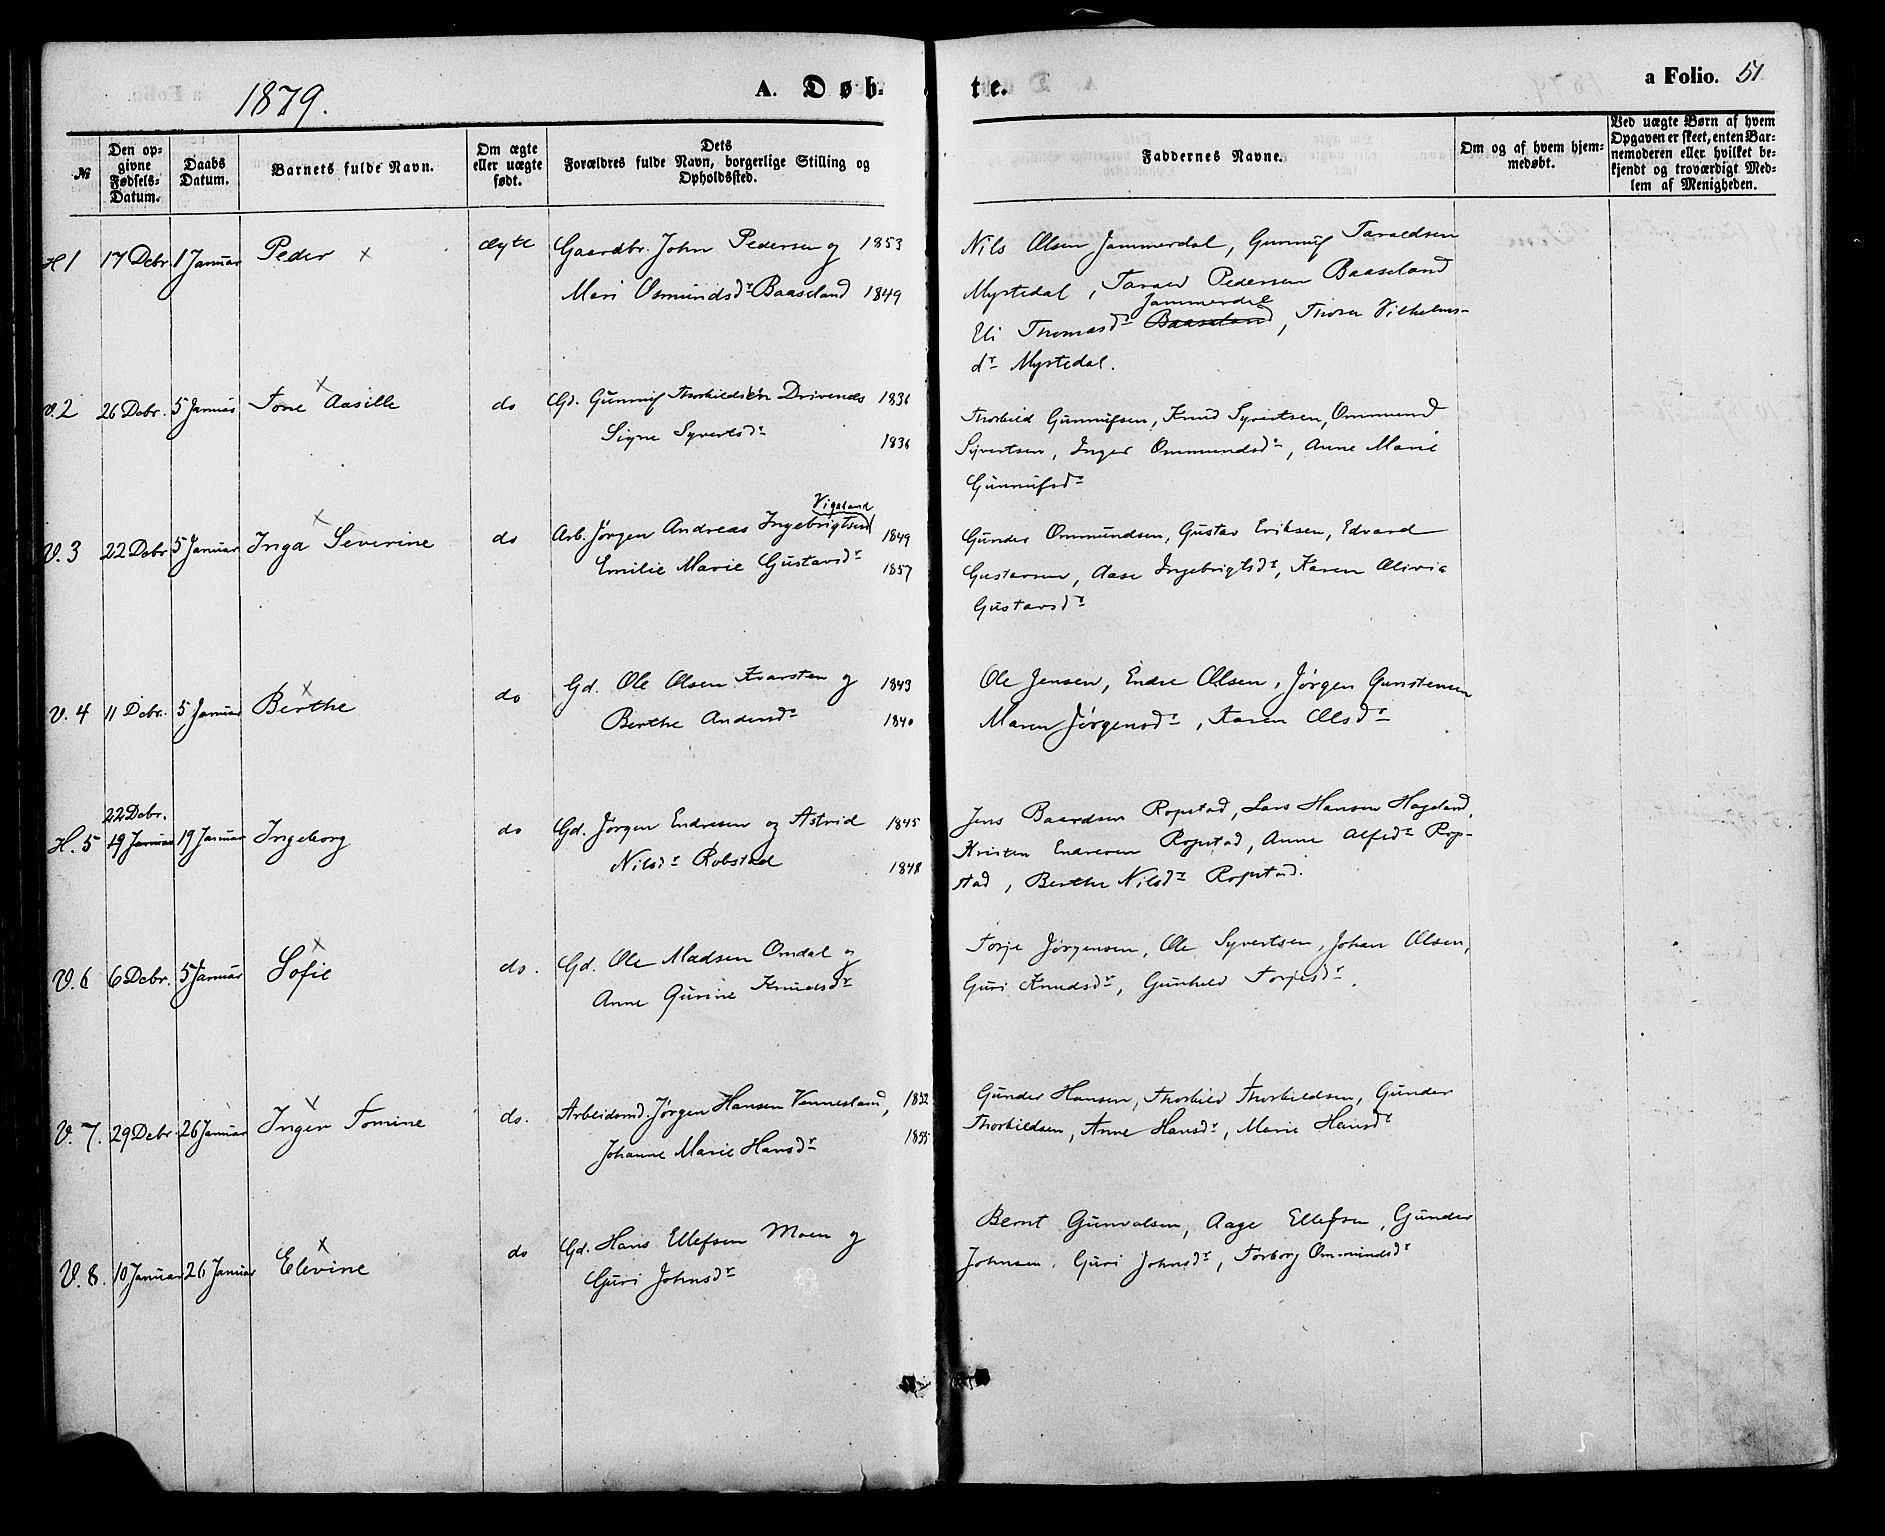 1879.
A. Døb-
te.
a Folio. 51
№
Den op-
givne
Fødsels-
Datum.
Daabs
Datum.
Barnets fulde Navn.
Om ægte
eller uægte
født.
Dets
Forældres fulde Navn, borgerlige Stilling og
Opholdssted.
Faddernes Navne.
Om og af hvem hjem-
medøbt.
Ved uægte Børn af hvem
Opgaven er skeet, enten Bar-
nemoderen eller hvilket be-
kjendt og troværdigt Med-
lem af Menigheden.
H 1 17 Debr. 1 Januar Peder x ægte Gaardbr. John Pedersen og 1853
Mari Osmundsdr Baaseland 1849
Nils Olsen Jammerdal, Gunnuf Taraldsen
Myrtedal, Tarald Pedersen Baaseland
Jammerdal
Eli Thomasdr Baaseland, Thora Vilhelms-
dr Myrtedal.
x
V. 2 26 Debr. 5 Januar Tone Aasille do Gd. Gunnuf Thorkildsen Drivenes 1836
Signe Syvertsdr 1836
Thorkild Gunnufsen, Knud Syvertsen, Ommund
Syvertsen, Inger Ommundsdr, Anne Marie
Gunnufsdr
x
Vigeland
V. 3 22 Debr 5 Januar Inga Severine do Arb. Jørgen Andreas Ingebrigtsen 1849
Emilie Marie Gustavsdr 1857
Gunder Ommundsen, Gustav Eriksen, Edvard
Gustavsen, Aase Ingebrigtsdr, Karen Olivia
Gustavsdr
x
V. 4 11 Debr. 5 Januar Berthe do Gd. Ole Olsen Kvarsten og 1843
Berthe Andersdr 1840
Ole Jensen, Endre Olsen, Jørgen Gunstensen
Maren Jørgensdr, Karen Olsdr
22 Debr.
H. 5 19 Januar 19 Januar Ingeborg do Gd. Jørgen Endresen og Astrid 1845
Nilsdr Robstad 1848
Jens Baardsen Ropstad, Lars Hansen Hageland,
Kristen Endresen Ropstad, Anne Alfsdr Rop-
stad, Berthe Nilsdr Ropstad.
x
V. 6 6 Debr. 5 Januar Sofie do. Gd. Ole Madsen Omdal og
Anne Gurine Knudsdr
Torje Jørgensen, Ole Syvertsen, Johan Olsen,
Guri Knudsdr, Gunhild Torjesdr.
x
V. 7. 29 Debr. 26 Januar Inger Tomine do. Arbeidsmd. Jørgen Hansen Vennesland, 1852
Johanne Marie Hansdr 1855
Gunder Hansen, Thorkild Thorkildsen, Gunder
Thorkildsen, Anne Hansdr, Marie Hansdr
x
V. 8. 10 Januar 26 Januar Elevine do Gd. Hans Ellefsen Moen og
Guri Johnsdr
Bernt Gunvalsen, Aage Ellefsen, Gunder
Johnsen, Guri Johnsdr, Torborg Ommundsdr